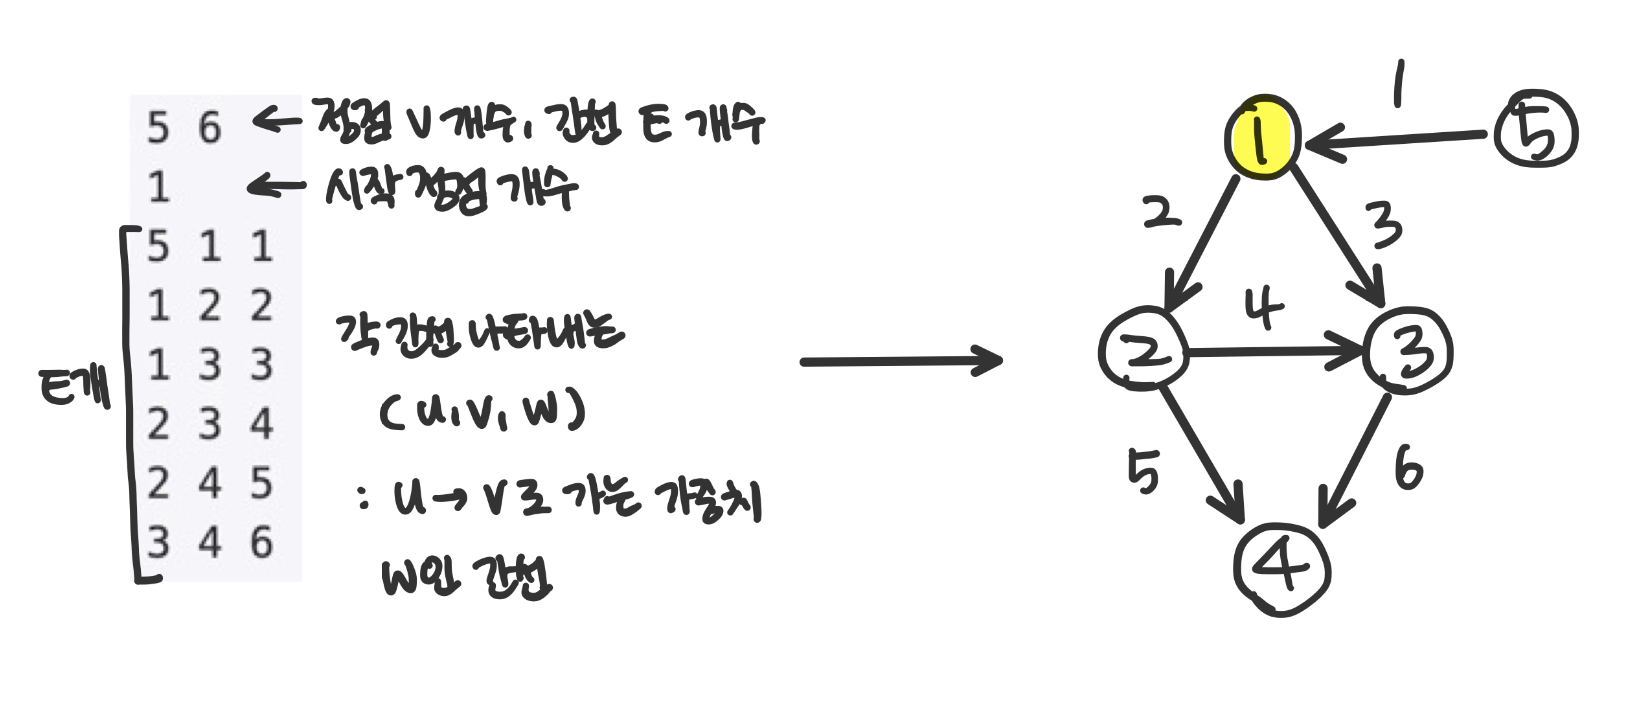 5 6 ← 정점 V 개수, 간선 E 개수
1 ← 시작 정점 개수
5 1 1
1 2 2
1 3 3
2 3 4
2 4 5
3 4 6
E개
각 간선 나타내는
(u, v, w)
: u → v로 가는 가중치
w인 간선
1
1
5
2
3
4
2
3
5
6
4